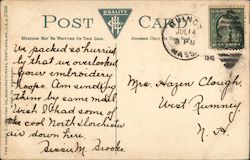 POST CARD
QUALITY
MESSAGE MAY BE WRITTEN ON THIS SIDE.
ADDRESS ONLY ON THIS SIDE.
QUINCY
JUL 14
8 PM
MASS.
We packed so hurried-
ly that we overlooked
your embroidery
hoops. Am sending
them by same mail
Wish I had some of
the cool North Dorchester
air down here.
Bessie M. Brooks
Mrs. Hazen Clough,
West Rumney
N. H.